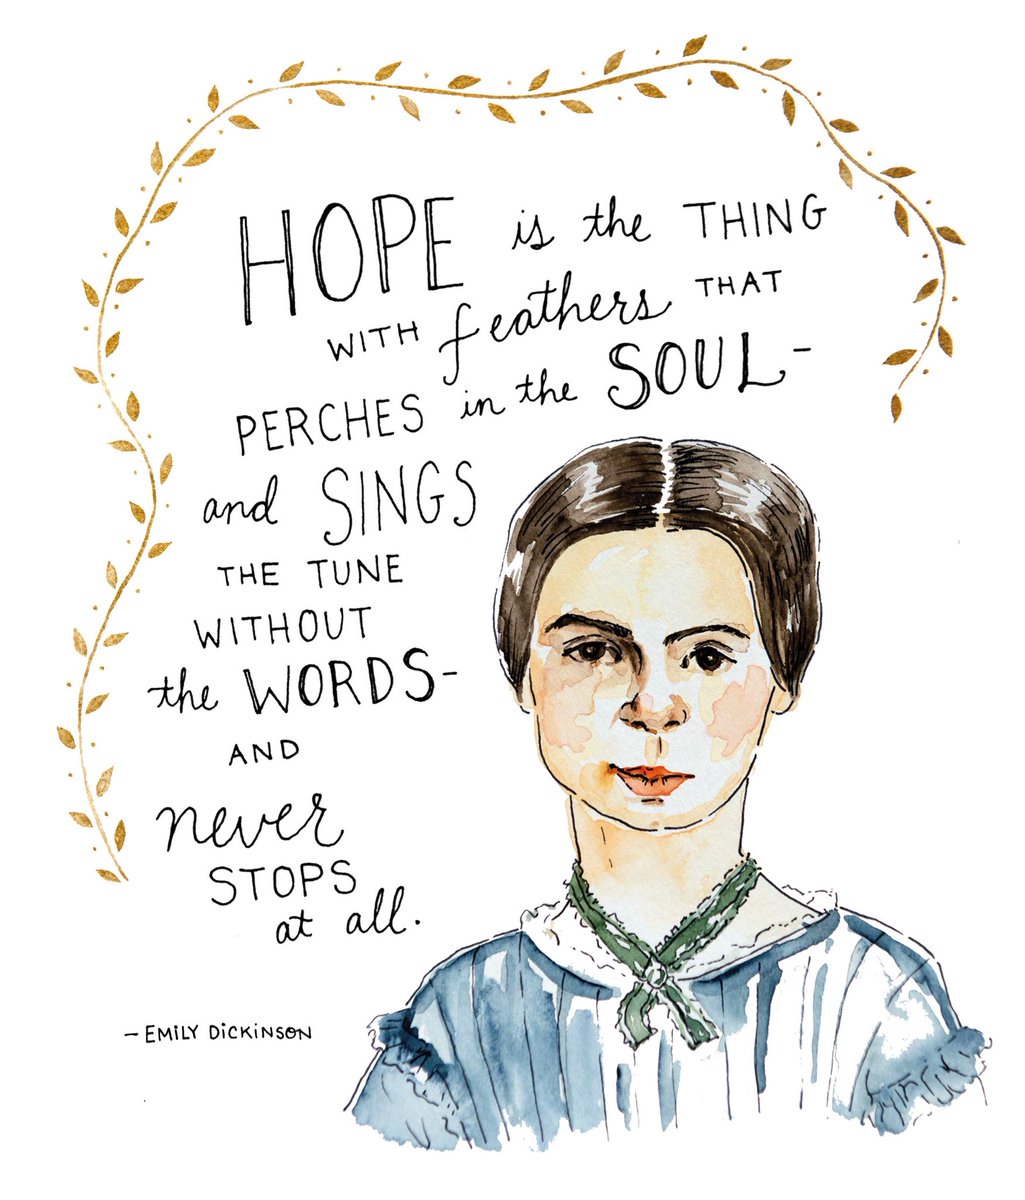 HOPE is the THING
WITH feathers THAT
PERCHES in the SOUL-
and SINGS
THE TUNE
WITHOUT
the WORDS-
AND
never
STOPS
at all.
- EMILY DICKINSON